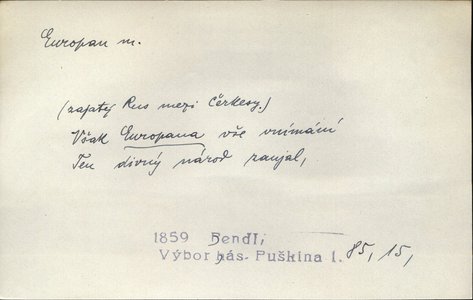 Europan m.
(zajatý Rus mezi Čerkesy.)
Však Europana vše vnímání
Ten divný národ zaujal,
1859 Bendl,
Výbor bás. Puškina I. 85, 15,